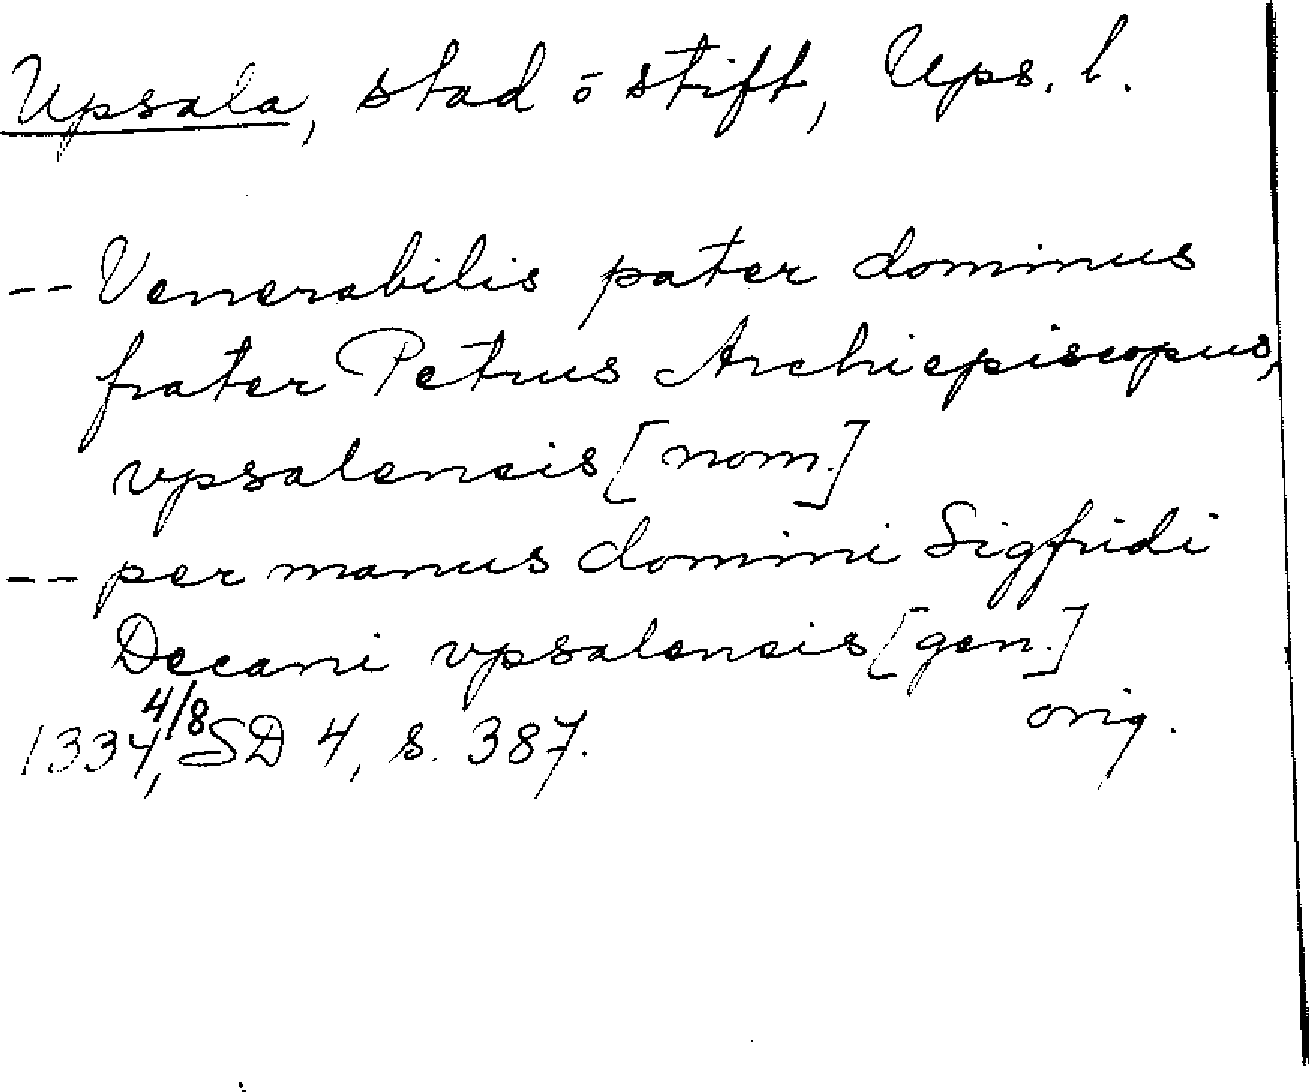 Upsala, stad o stift, Ups. l.
-- Venerabilis pater dominus
frater Petrus Archiepiscopus,
vpsalensis [nom.]
-- per manus domini Sigfridi
Decani vpsalensis [gen.]
1334, 4/8 SD 4, s. 387. orig.